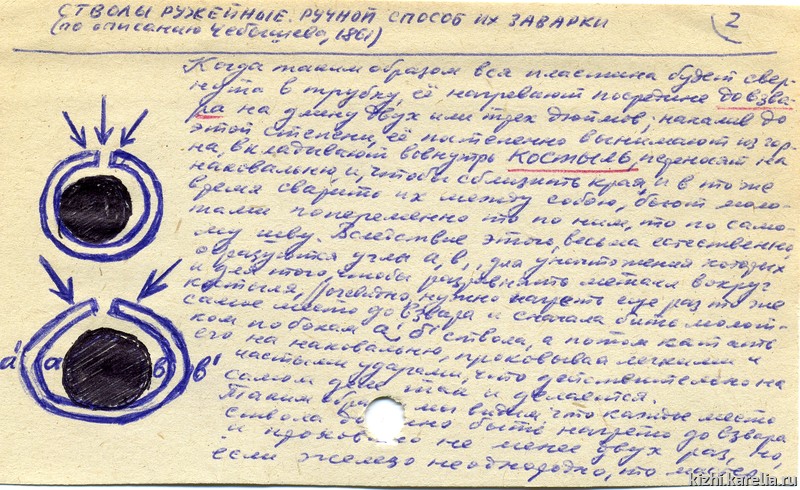 СТВОЛЫ РУЖЕЙНЫЕ. РУЧНОЙ СПОСОБ ИХ ЗАВАРКИ
2
(по описанию Чебышева, 1861)
Когда таким образом вся пластина будет свер-
нута в трубку, её нагревают посредине до взва-
ра на длину двух или трех дюймов; накалив до
этой степени, её постепенно вынимают из гор-
на, вкладывают вовнутрь костыль, переносят на
наковальню и, чтобы сблизить края, и в то же
время сварить их между собою, бьют моло-
тами попеременно то по ним, то по само-
му шву. Вследствие этого, весьма естественно,
образуются углы а, в, для уничтожения которых
и для того, чтобы разровнять металл вокруг
костыля, очевидно, нужно нагреть еще раз то же
самое место до взвара и сначала бить молот-
ком по бокам а' б' ствола, а потом катать
его на наковальне, проковывая легкими и
частыми ударами, что действительно на
самом деле так и делается.
Таким мы видим, что каждое место
ствола быть нагрето до взвара
и не менее двух раз, но,
если железо неоднородно, то мастер
а' а в в'
kizhi.karelia.ru